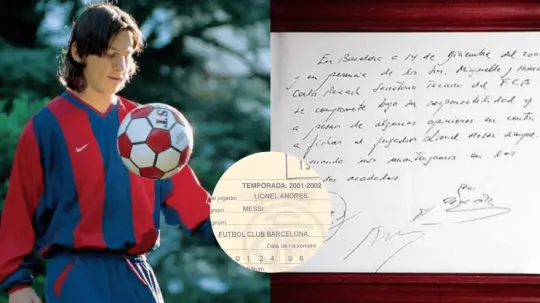 En Barcelona a 14 de Diciembre del 200
y en presencia de los Srs. Minguella y
Carles Rexach Secretario Técnico del F.C.B
se compromete bajo su responsabilidad y
a pesar de algunas opiniones en contra
a fichar al jugador Lionel Messi
cuando nos mantengamos en las
acordadas
TEMPORADA: 2001-2002
el jugador LIONEL ANDRES
gnom MESSI
gnom
FUTBOL CLUB BARCELONA
Data de naixement
0 1 2 4 0 6
ST